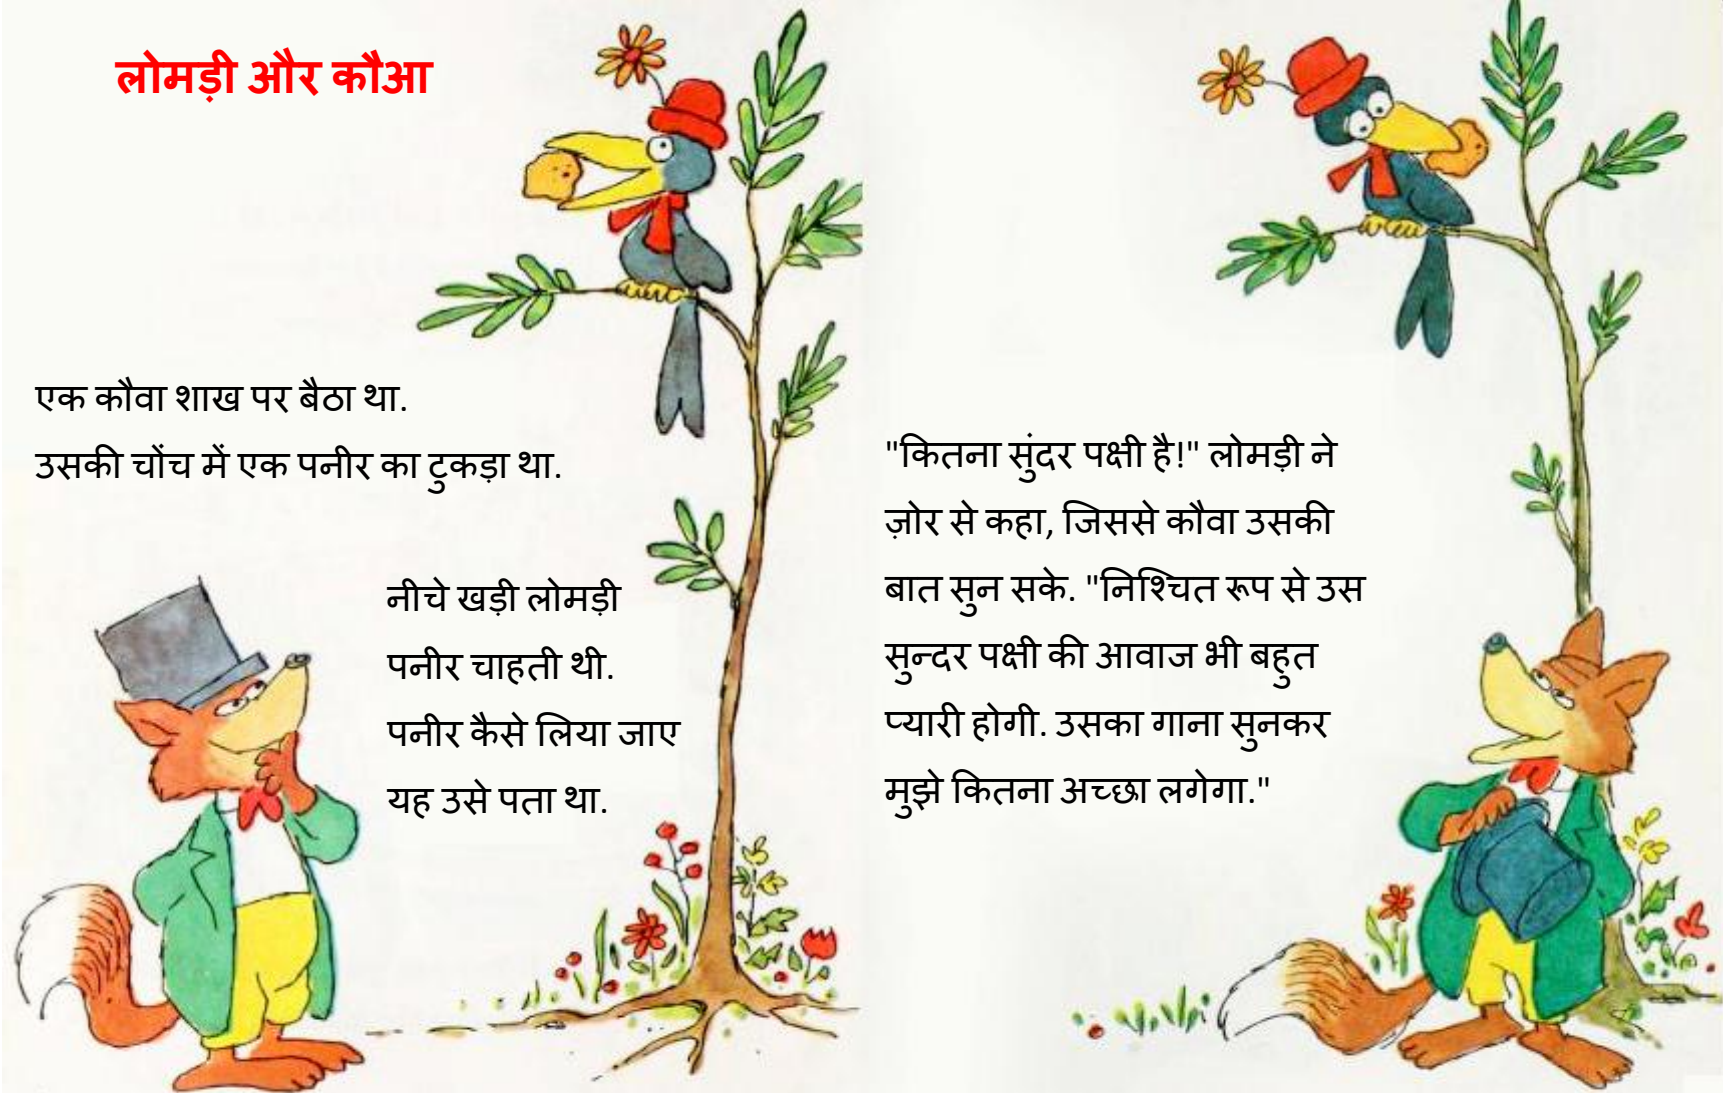 लोमड़ी और कौआ
एक कौवा शाख पर बैठा था.
उसकी चोंच में एक पनीर का टुकड़ा था.
नीचे खड़ी लोमड़ी
पनीर चाहती थी.
पनीर कैसे लिया जाए
यह उसे पता था.
"कितना सुंदर पक्षी है!" लोमड़ी ने
ज़ोर से कहा, जिससे कौवा उसकी
बात सुन सके. "निश्चित रूप से उस
सुन्दर पक्षी की आवाज भी बहुत
प्यारी होगी. उसका गाना सुनकर
मुझे कितना अच्छा लगेगा."